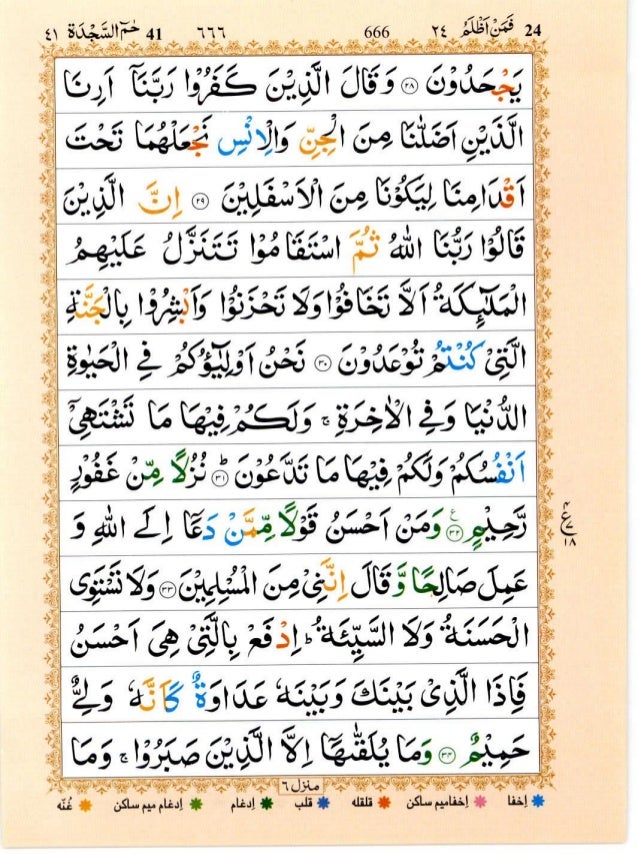 فَمَنْ اَظْلَمُ ٢٤ 24 666 ٦٦٦ حٰمٓ السَّجْدَة 41 ٤١
يَجْحَدُوْنَ ﴿٢٨﴾ وَقَالَ الَّذِيْنَ كَفَرُوْا رَبَّنَاۤ اَرِنَا
الَّذَيْنِ اَضَلّٰنَا مِنَ الْجِنِّ وَالْاِنْسِ نَجْعَلْهُمَا تَحْتَ
اَقْدَامِنَا لِيَكُوْنَا مِنَ الْاَسْفَلِيْنَ ﴿٢٩﴾ اِنَّ الَّذِيْنَ
قَالُوْا رَبُّنَا اللّٰهُ ثُمَّ اسْتَقَامُوْا تَتَنَزَّلُ عَلَيْهِمُ
الْمَلٰٓئِكَةُ اَلَّا تَخَافُوْا وَلَا تَحْزَنُوْا وَاَبْشِرُوْا بِالْجَنَّةِ
الَّتِىْ كُنْتُمْ تُوْعَدُوْنَ ﴿٣٠﴾ نَحْنُ اَوْلِيٰٓؤُكُمْ فِى الْحَيٰوةِ
الدُّنْيَا وَفِى الْاٰخِرَةِ ۚ وَلَكُمْ فِيْهَا مَا تَشْتَهِىْۤ
اَنْفُسُكُمْ وَلَكُمْ فِيْهَا مَا تَدَّعُوْنَ ؕ﴿٣١﴾ نُزُلًا مِّنْ غَفُوْرٍ
رَّحِيْمٍ ﴿٣٢﴾ ع وَمَنْ اَحْسَنُ قَوْلًا مِّمَّنْ دَعَاۤ اِلَى اللّٰهِ وَ
عَمِلَ صَالِحًا وَّقَالَ اِنَّنِىْ مِنَ الْمُسْلِمِيْنَ ﴿٣٣﴾ وَلَا تَسْتَوِى
الْحَسَنَةُ وَلَا السَّيِّئَةُ ؕ اِدْفَعْ بِالَّتِىْ هِىَ اَحْسَنُ
فَاِذَا الَّذِىْ بَيْنَكَ وَبَيْنَهٗ عَدَاوَةٌ كَاَنَّهٗ وَلِىٌّ
حَمِيْمٌ ﴿٣٤﴾ وَمَا يُلَقّٰىهَاۤ اِلَّا الَّذِيْنَ صَبَرُوْا ۚ وَمَا
٤ ع ٧ ١٨
منزل ٦
اِخفا اِخفامیم ساکن قلقله قلب اِدغام اِدغام میم ساکن غُنّه